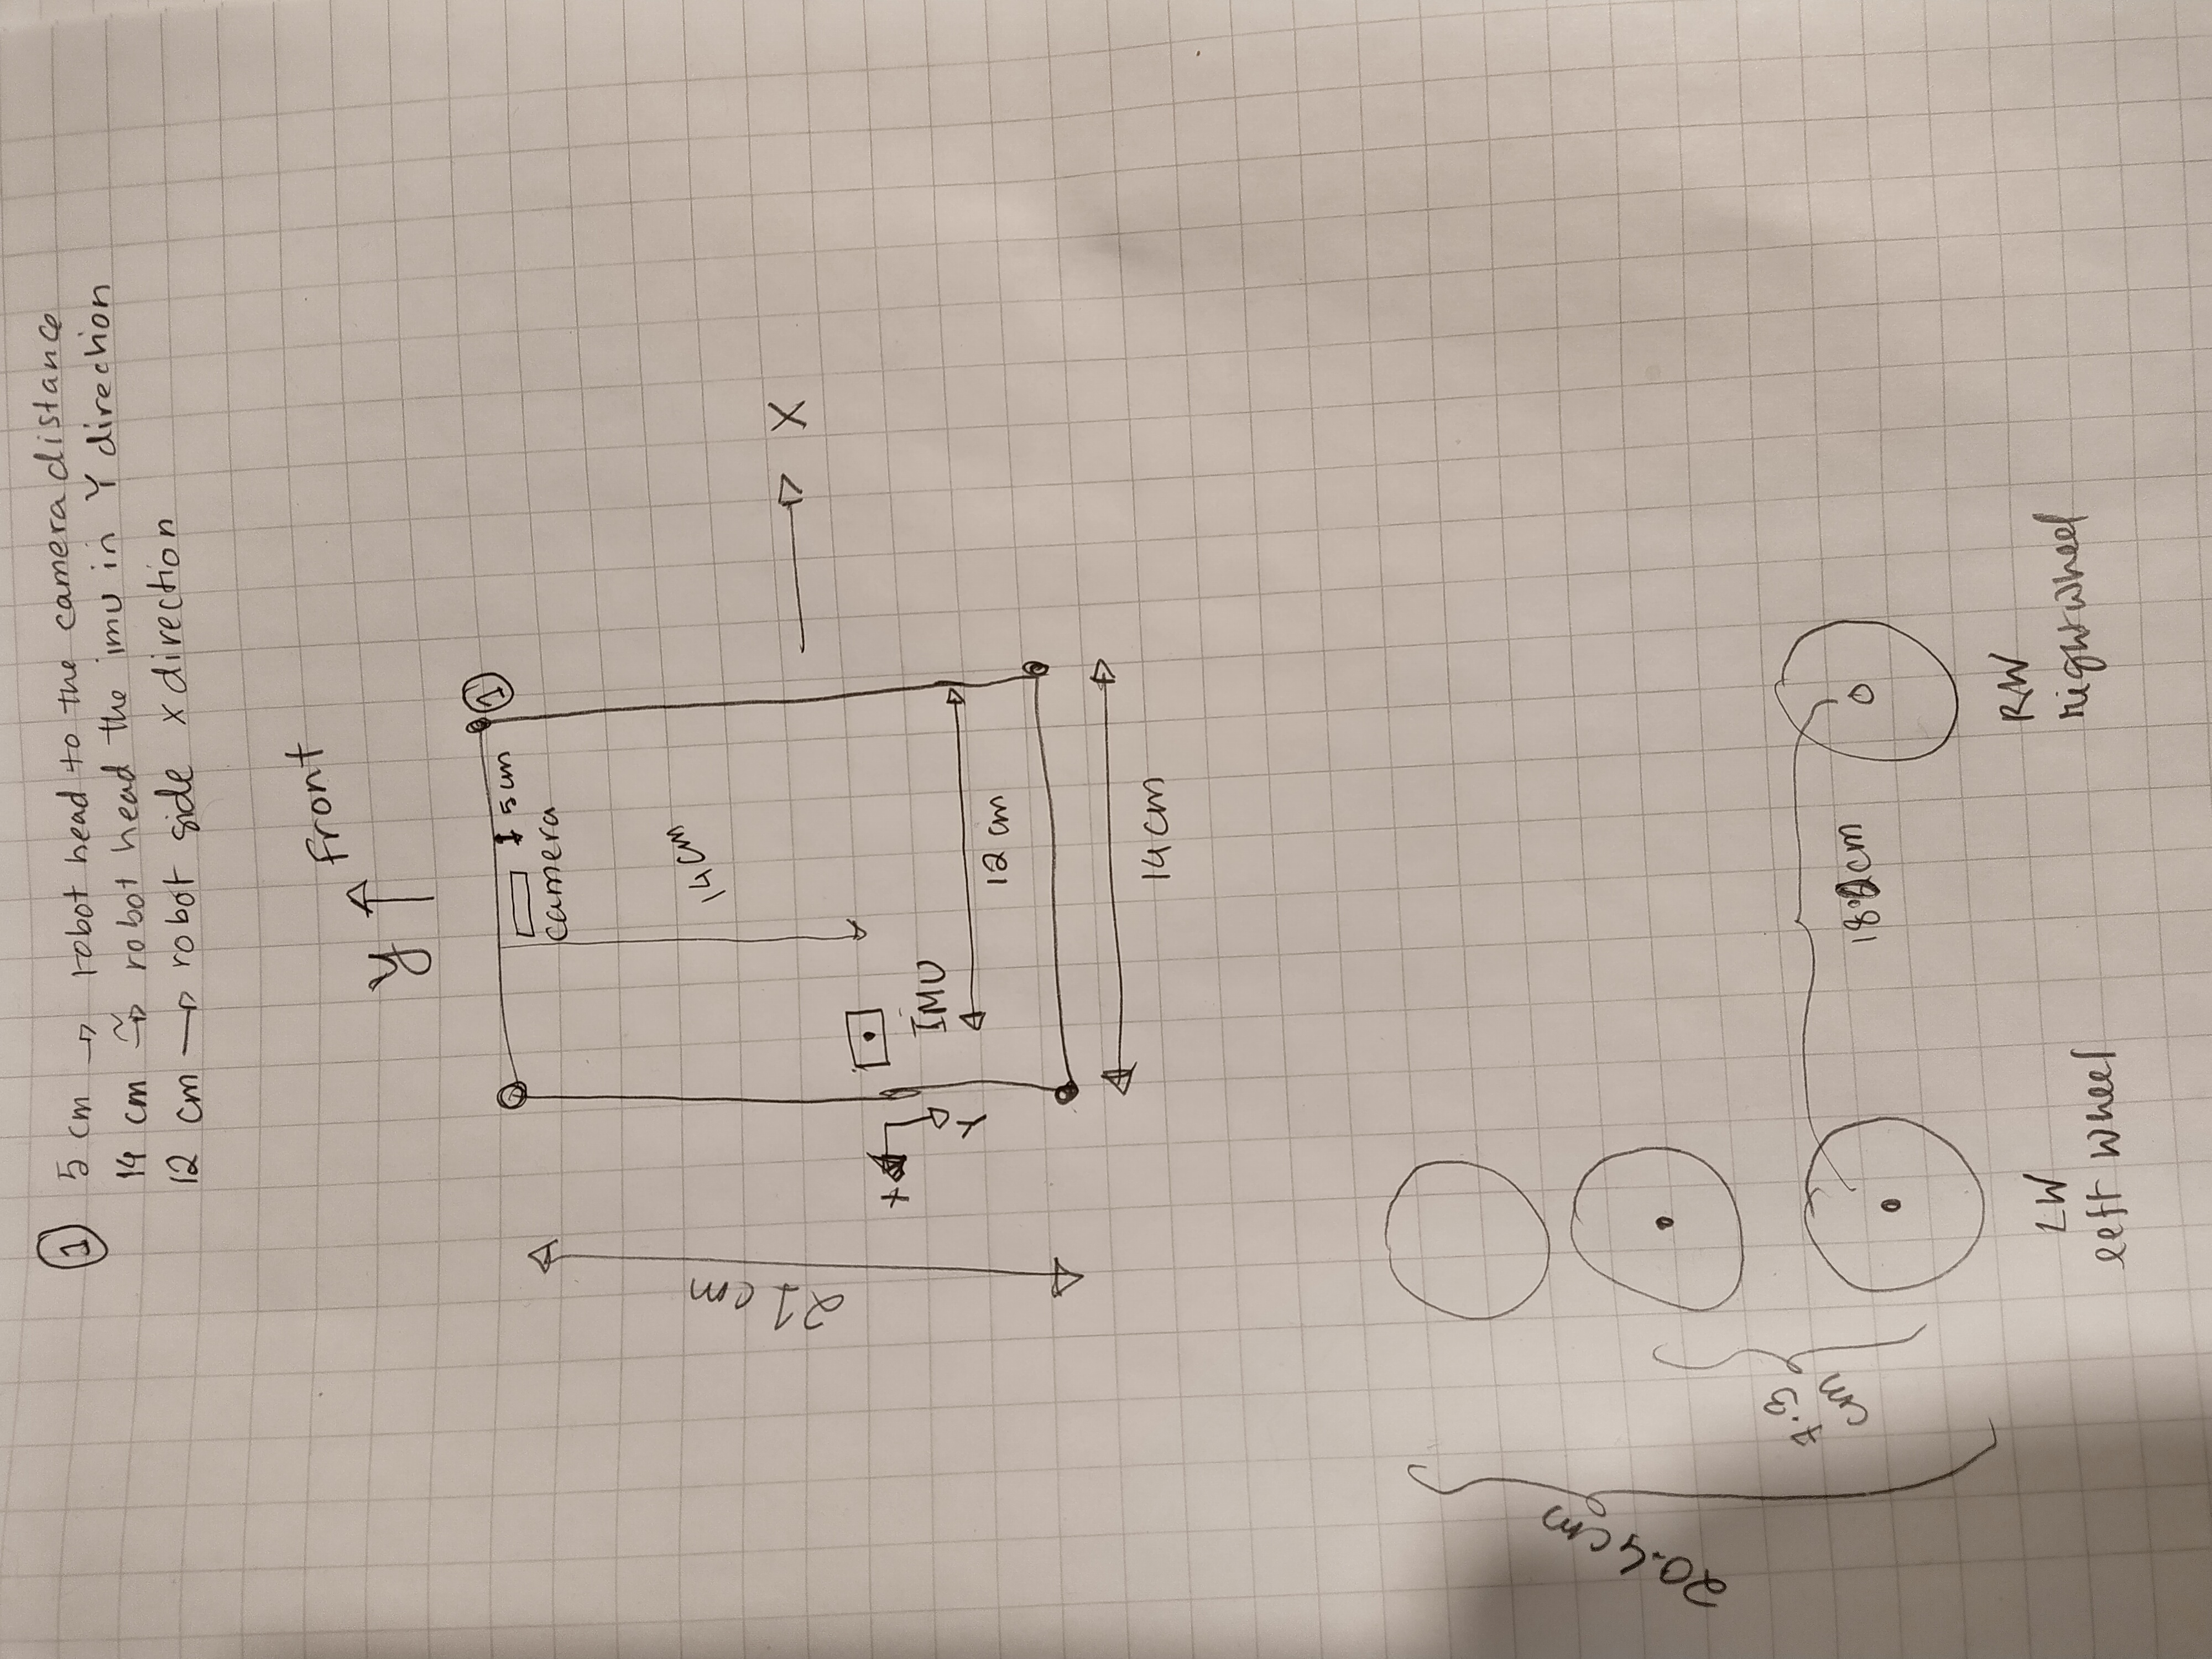 ① 5 cm → robot head to the camera distance
14 cm ≅> robot head the imu in Y direction
12 cm → robot side x direction
Front
y
①
5 cm
camera
21 cm
14 cm
X
x
IMU
Y
12 cm
14 cm
20.4 cm
7.3
cm
cm
RW
right wheel
LW
left wheel